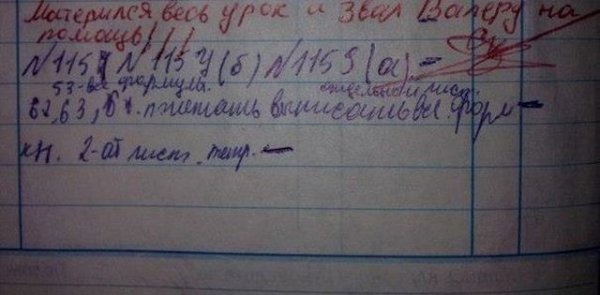 Матерился весь урок и звал Валеру на
помощь!!!
№1157 №115У(б) №1159(а) -
53-все формулы. отдельный лист.
62,63, читать, выписать все форм
кн. 2-ой лист. тетр. -